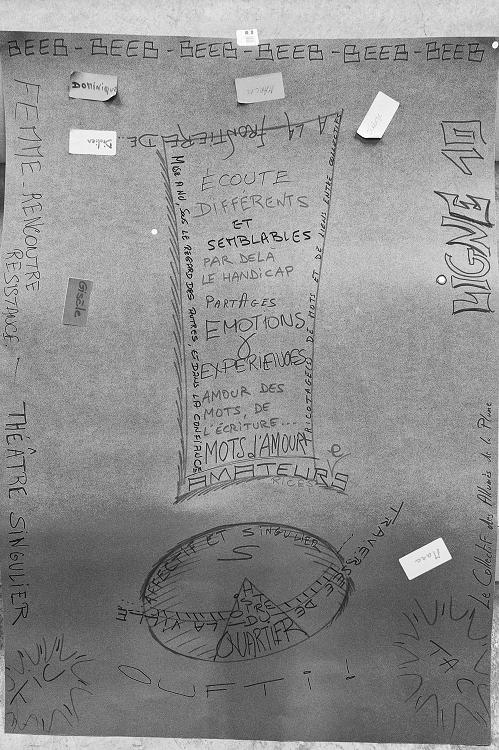 BEEB-BEEB-BEEB-BEEB-BEEB-BEEB
Dominique
Didier
Gisèle
FEMME-RENCONTRE
RESISTANCE
THÉÂTRE SINGULIER
A LA FRONTIERE DE...
MISE A NU, SOUS LE REGARD DES AUTRES, ET DANS LA CONFIANCE
ÉCOUTE
DIFFÉRENTS
ET
SEMBLABLES
PAR DELA
LE HANDICAP
PARTAGES
EMOTIONS
EXPERIENCES
AMOUR DES
MOTS, DE
L'ÉCRITURE...
MOTS d'AMOUR
TRICOTAGE DE MOTS ET DE LIENS ENTRE COLLECTIFS
AMATEURS
RICES
LIGNE 10
Le Collectif des Allumés de la Plume
AFFECTIF ET SINGULIER
S
TRAVERSÉE DE LA VIE
THÉÂTRE
DU
QUARTIER
OUFTI!